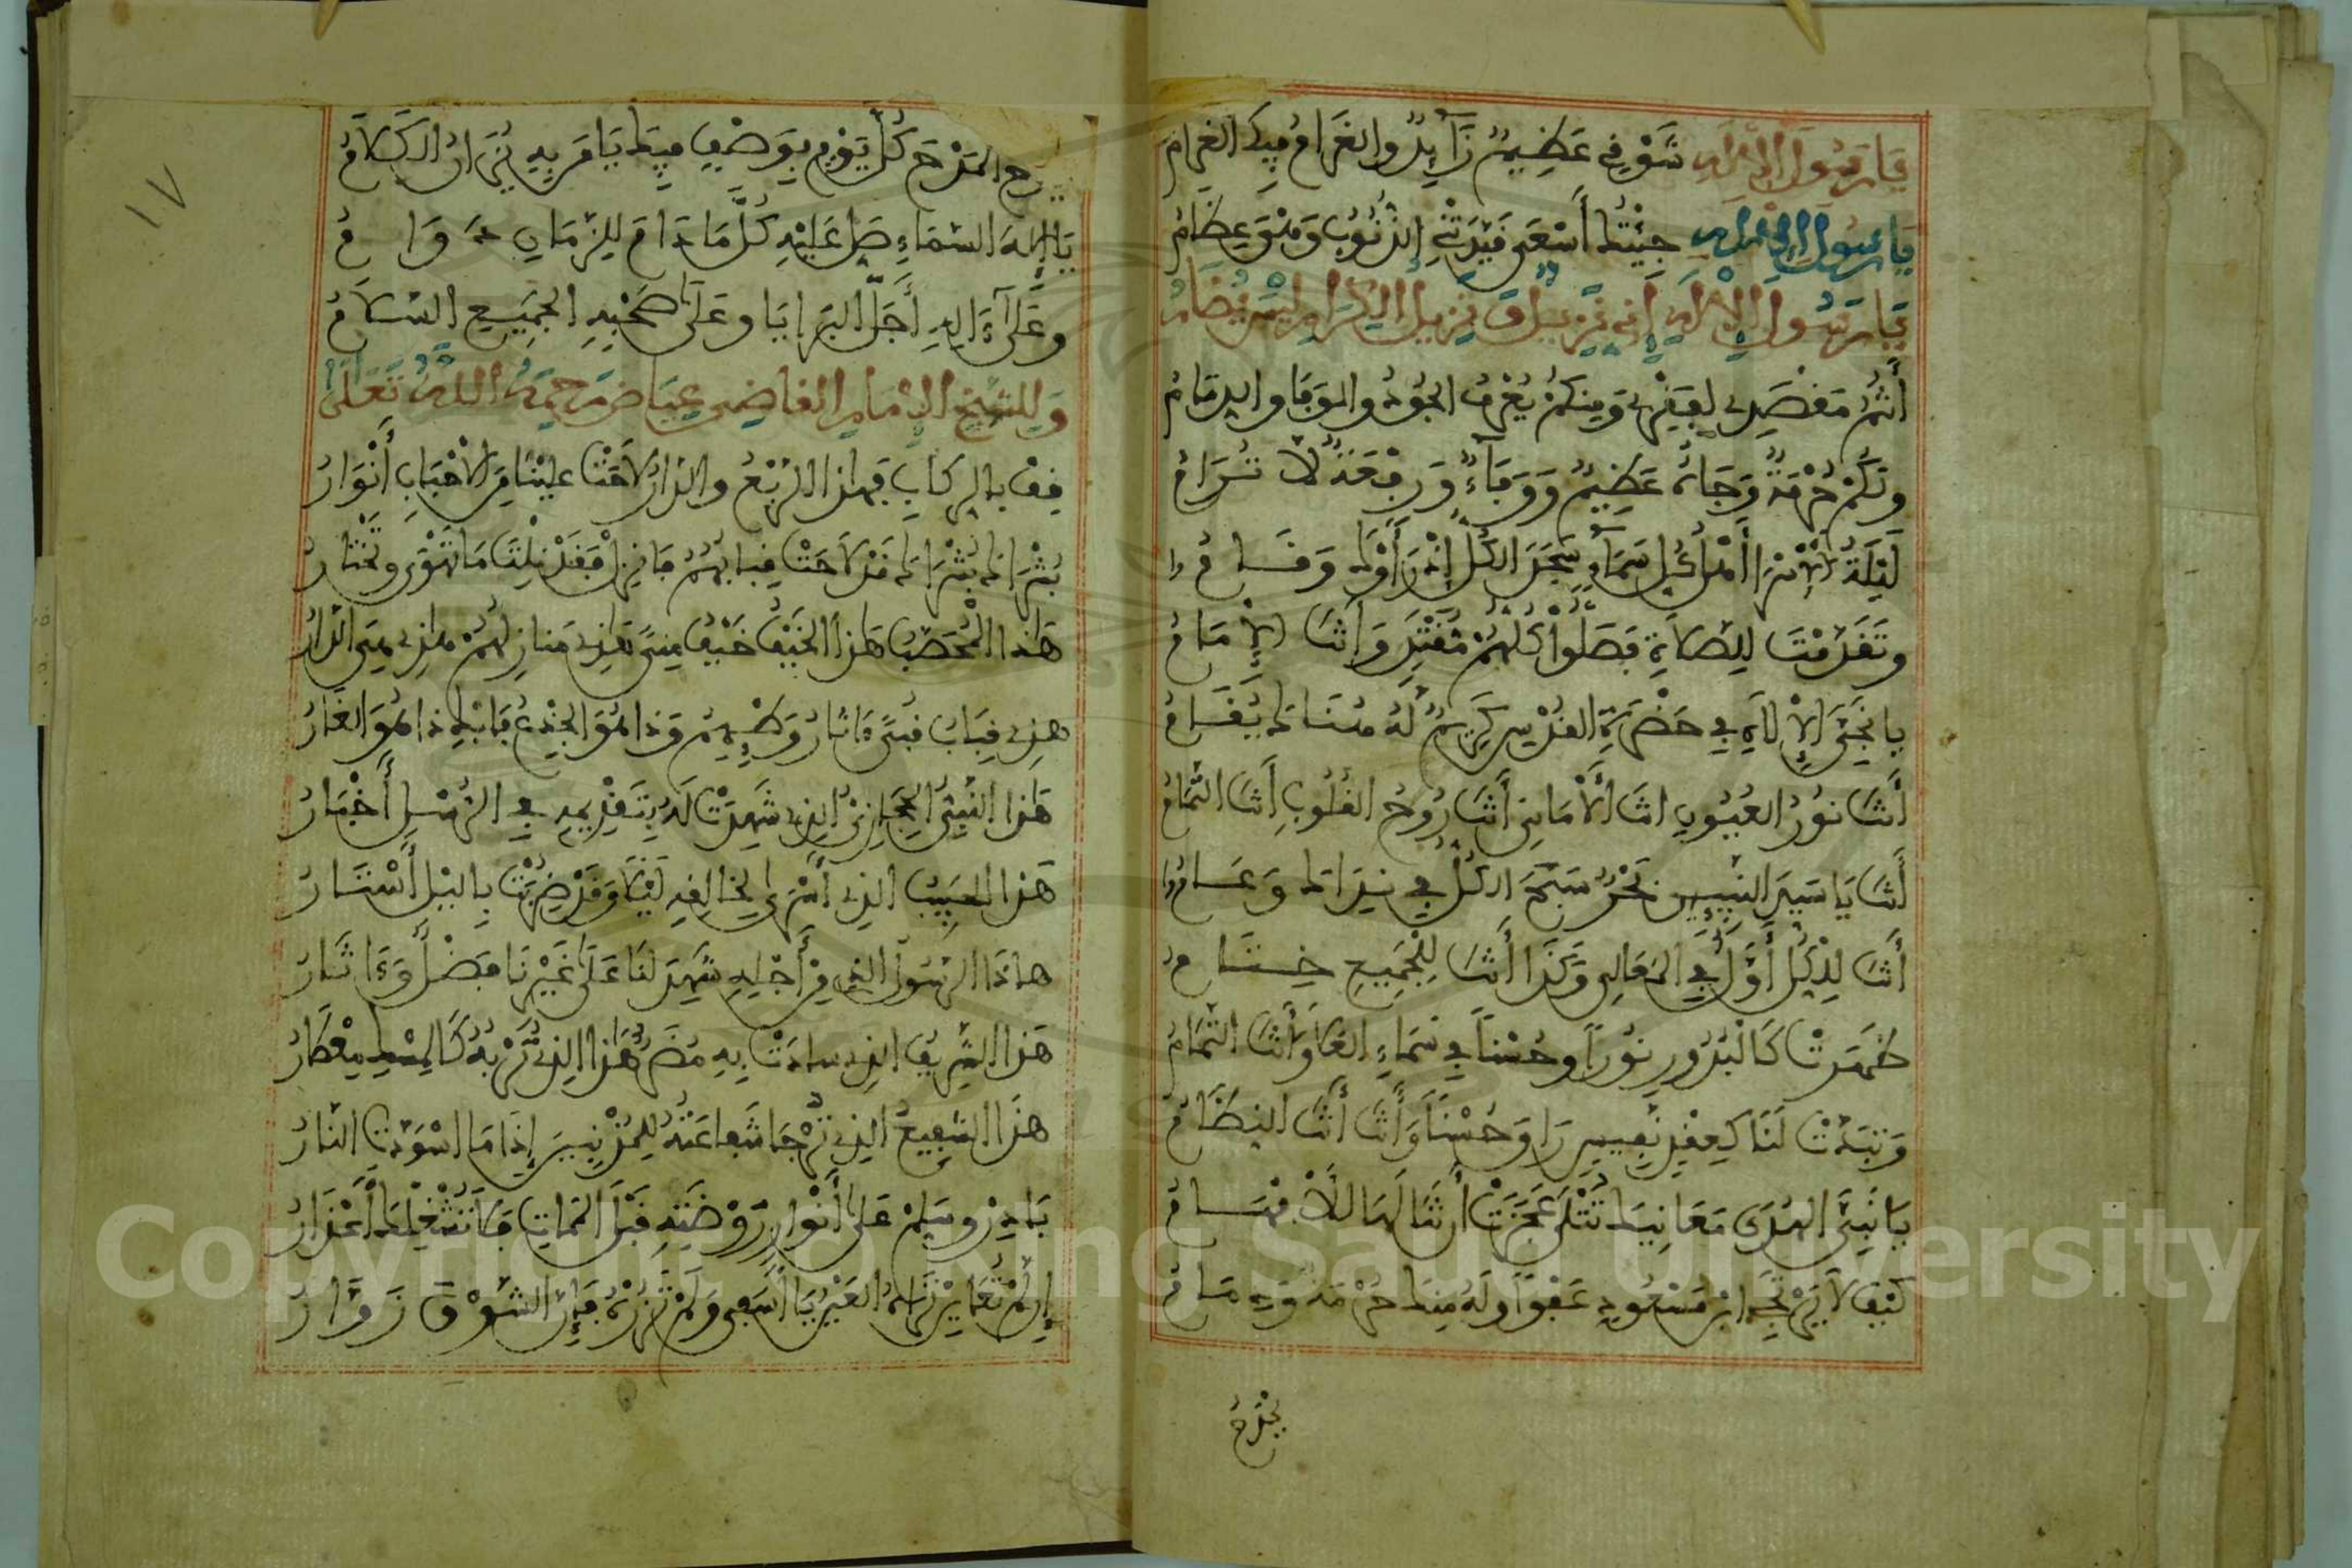 يَا رَسُولَ الْإِلَهِ شَوْقِي عَظِيمٌ زَآيِدٌ والغَرَامُ فِيكَ الغَرَامُ
يَا رَسُولَ الْإِلَهِ جِئْتُكَ أَسْعَى قَيَّدَتْنِي الذُّنُوبُ وَهْيَ عِظَامُ
يَا رَسُولَ الْإِلَهِ إِنِّي نَزِيلٌ وَنَزِيلُ الْكِرَامِ لَيْسَ يُضَامُ
أَنْتُمُ مَقْصَدِي لِفَقْرِي وَمِنْكُمْ يُعْرَفُ الجُودُ والوَفَا والذِّمَامُ
وَلَكُمْ حُرْمَةٌ وَجَاهٌ عَظِيمٌ وَوَفَاءٌ وَرِفْعَةٌ لَا تُرَامُ
لَيْلَةُ الْإِسْرَا أَمْلَاكُ كُلِّ سَمَاءٍ سَجَدَ الْكُلُّ إِذْ رَأَوْكَ وَقَامُوا
وتَقَدَّمْتَ لِلصَّلَاةِ فَصَلَّوْا كُلُّهُمْ مُقْتَدٍ وَأَنْتَ الْإِمَامُ
يا نَجِيَّ الْإِلَهِ فِي حَضْرَةِ القُدْسِ كَرِيمٌ لَهُ هُنَاكَ يُقَامُ
أَنْتَ نُورُ العُيُونِ أنتَ الْأَمَانِي أَنْتَ رُوحُ القُلُوبِ أَنْتَ التَّمَامُ
أَنْتَ يَا سَيِّدَ النَّبِيِّينَ بَحْرٌ سَبَحَ الكُلُّ فِي نَدَاكَ وَعَامُوا
أَنْتَ لِلْكُلِّ أَوَّلٌ فِي المَعَالِي وَكَذَا أَنْتَ لِلْجَمِيعِ خِتَامُ
ظَهَرَتْ كَالْبُدُورِ نُوراً وحُسْناً فِي سَمَاءِ العُلَا وَأَنْتَ التَّمَامُ
وَتَبَدَّتْ لَنَا كَعِقْدٍ نَفِيسٍ وَحُسْناً وَأَنْتَ أَنْتَ النِّظَامُ
يَا نَبِيَّ الهُدَى مَعَانِيكَ تُتْلَى عَجَزَتْ أَنْ تَنَالَهَا الْأَفْهَامُ
كَيْفَ لَا يَرْتَجِي ابْنُ مَسْعُودِ عَفْواً ولَهُ مِنْكَ حُرْمَةٌ وَذِمَامُ
يَمْدَحُ
المَدْحَ كُلَّ يَوْمٍ بِوَصْفٍ فِيكَ يَا مَن بِهِ يُزَانُ الكَلَامُ
يَا إِلَهَ السَّمَاءِ صَلِّ عَلَيْهِ كُلَّ مَا دَامَ لِلزَّمَانِ دَوَامُ
وَعَلَى ءَالِهِ أَجَلِّ البَرَايَا وَعَلَى صَحْبِهِ الجَمِيعِ السَّلَامُ
وَلِلشَّيْخِ الْإِمَامِ القَاضِي عِيَاض رَحِمَهُ اللَّهُ تَعَالَى
قِفْ بِالرِّكَابِ فَهَذَا الرَّبْعُ والدَّارُ لَاحَتْ عَلَيْنَا مِنَ الْأَحْبَابِ أَنْوَارُ
بُشْرَاكَ بُشْرَاكَ قَدْ لَاحَتْ قِبَابُهُمُ فَانْزِلْ فَقَدْ نِلْتَ مَا تَهْوَى وَتَخْتَارُ
هَذَا الْمُحَصَّبُ هَذَا الخَيْفُ خَيْفُ مِنًى هَذِي مَنَازِلُهُمْ هَذِي هِيَ الدَّارُ
هذِي قِبَابُ قُبًى ءَاثَارُ وَطْيِهِمُ وَذَا هُوَ الجِذْعُ فَابْكِ ذَا هُوَ الغَارُ
هَذَا النَّبِيُّ الحِجَازِيُّ الذِي شَهِدَتْ لَهُ بِتَقْدِيمِهِ فِي الرُّسْلِ أَخْبَارُ
هَذَا الحَبِيبُ الذِي أَسْرَى لِخَالِقِهِ لَيْلًا وَقَدْ ضُرِبَتْ بِالليْلِ أَسْتَارُ
هاذَا الرَّسُولُ الذِي مِنْ أَجْلِهِ شَهِدَ لَنَا عَلَى غَيْرِنَا فَضْلٌ وَءَاثَارُ
هَذَا الشَّرِيفُ الذِي سادَتْ بِهِ مُضَرُ هَذَا الذِي تُرْبُهُ كَالْمِسْكِ مِعْطَارُ
هَذَا الشَّفِيعُ الذِي تُرْجَا شَفَاعَتُهُ لِلْمُذْنِبِينَ إِذَا مَا اسْوَدَّتِ النَّارُ
بَادِرْ وسَلِّمْ عَلَى أَنْوَارِ رَوْضَتِهِ قَبْلَ المَمَاتِ فَلَا تَشْغَلْكَ أَعْذَارُ
إِنْ لَمْ تُعَايِنْ تَرَاهُ العَيْنُ يَا أَسَفِي وَلَمْ تَزُرْهُ فَإِنَّ الشَّوْقَ زَوَّارُ
١٧
Copyright © King Saud University